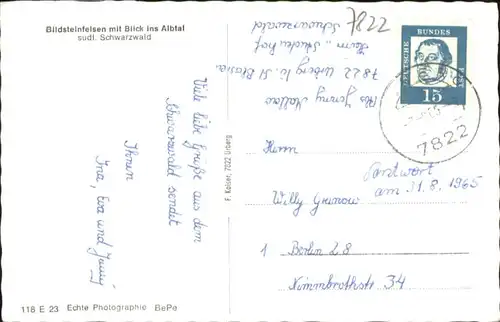 Bildsteinfelsen mit Blick ins Albtal
südl. Schwarzwald
Viele liebe Grüße aus dem
Schwarzwald sendet
Ihnen
Ina, Eva und Jenny
118 E 23 Echte Photographie BePe
F. Kaiser, 7822 Urberg
7822
Abs Jenny
7822 Urberg ü. St Blasien
Schwarzwald
DEUTSCHE BUNDES
15
7822
Herrn
Antwort
am 31.8.1965
Willy Grunow
1 Berlin 28
34